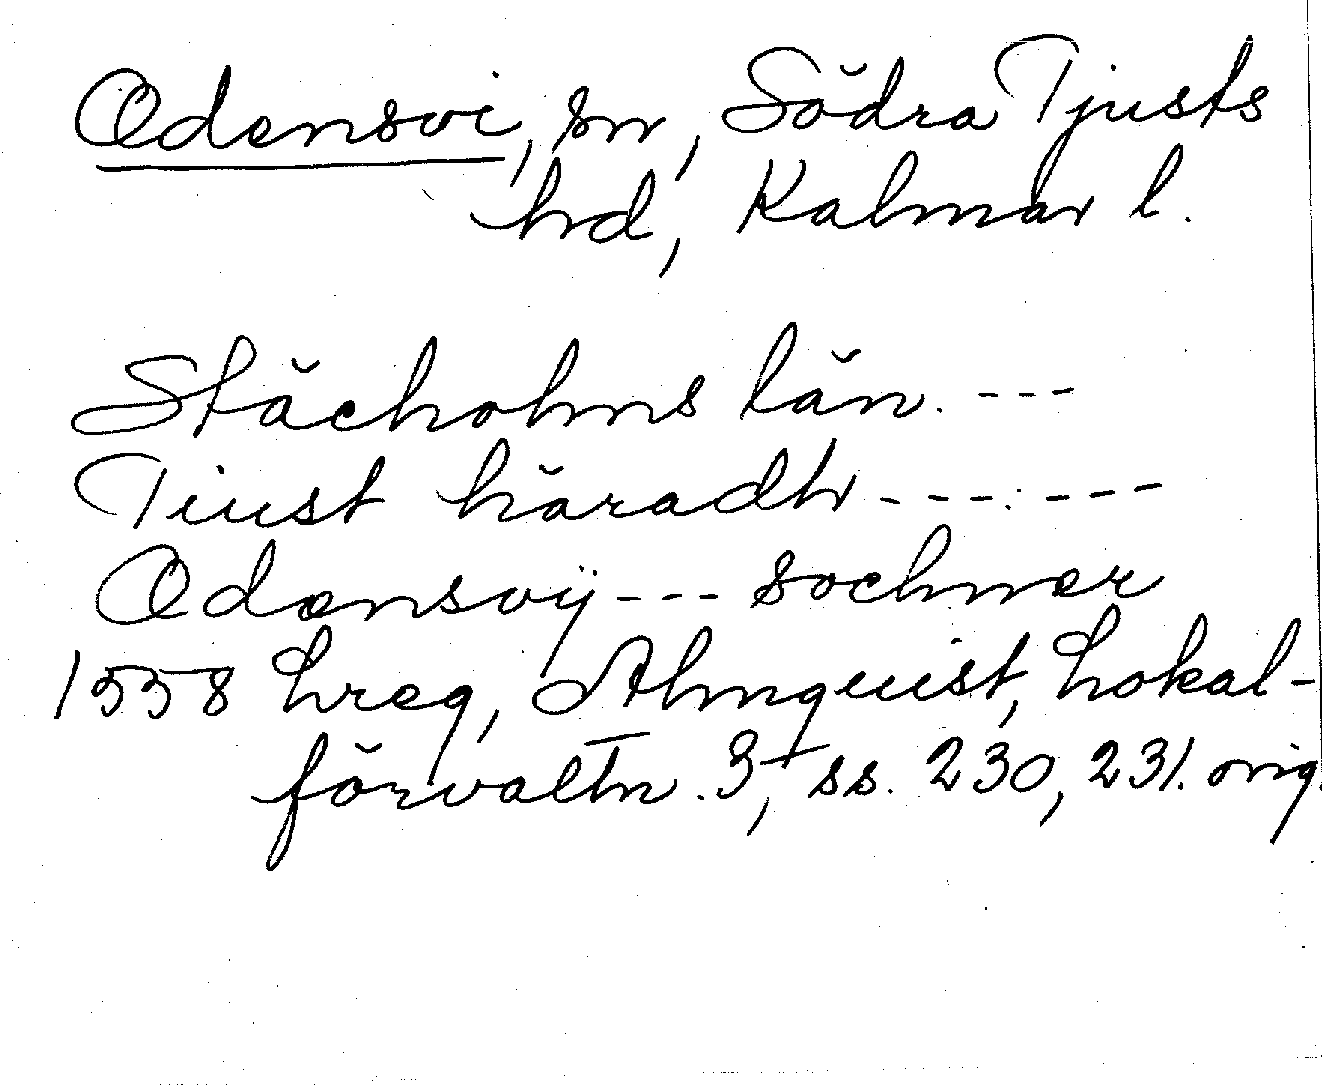 Odensvi, sn, Södra Tjusts
hd, Kalmar l.
Stächolms län. ---
Tiust häradh --- ---
Odensvÿ --- sochner
1558 hreg, Almquist, Lokal-
förvaltn. 3, ss. 230, 231. orig.